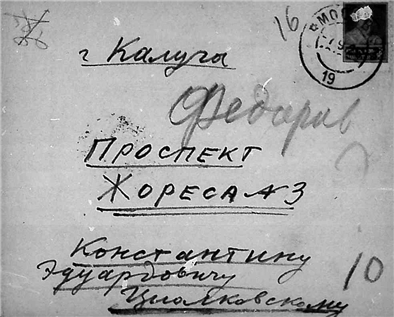 16
МОС
19
г Калуга
Федоров
Проспект
Жореса №3
Константину
Эдуардовичу
Циолковскому
10